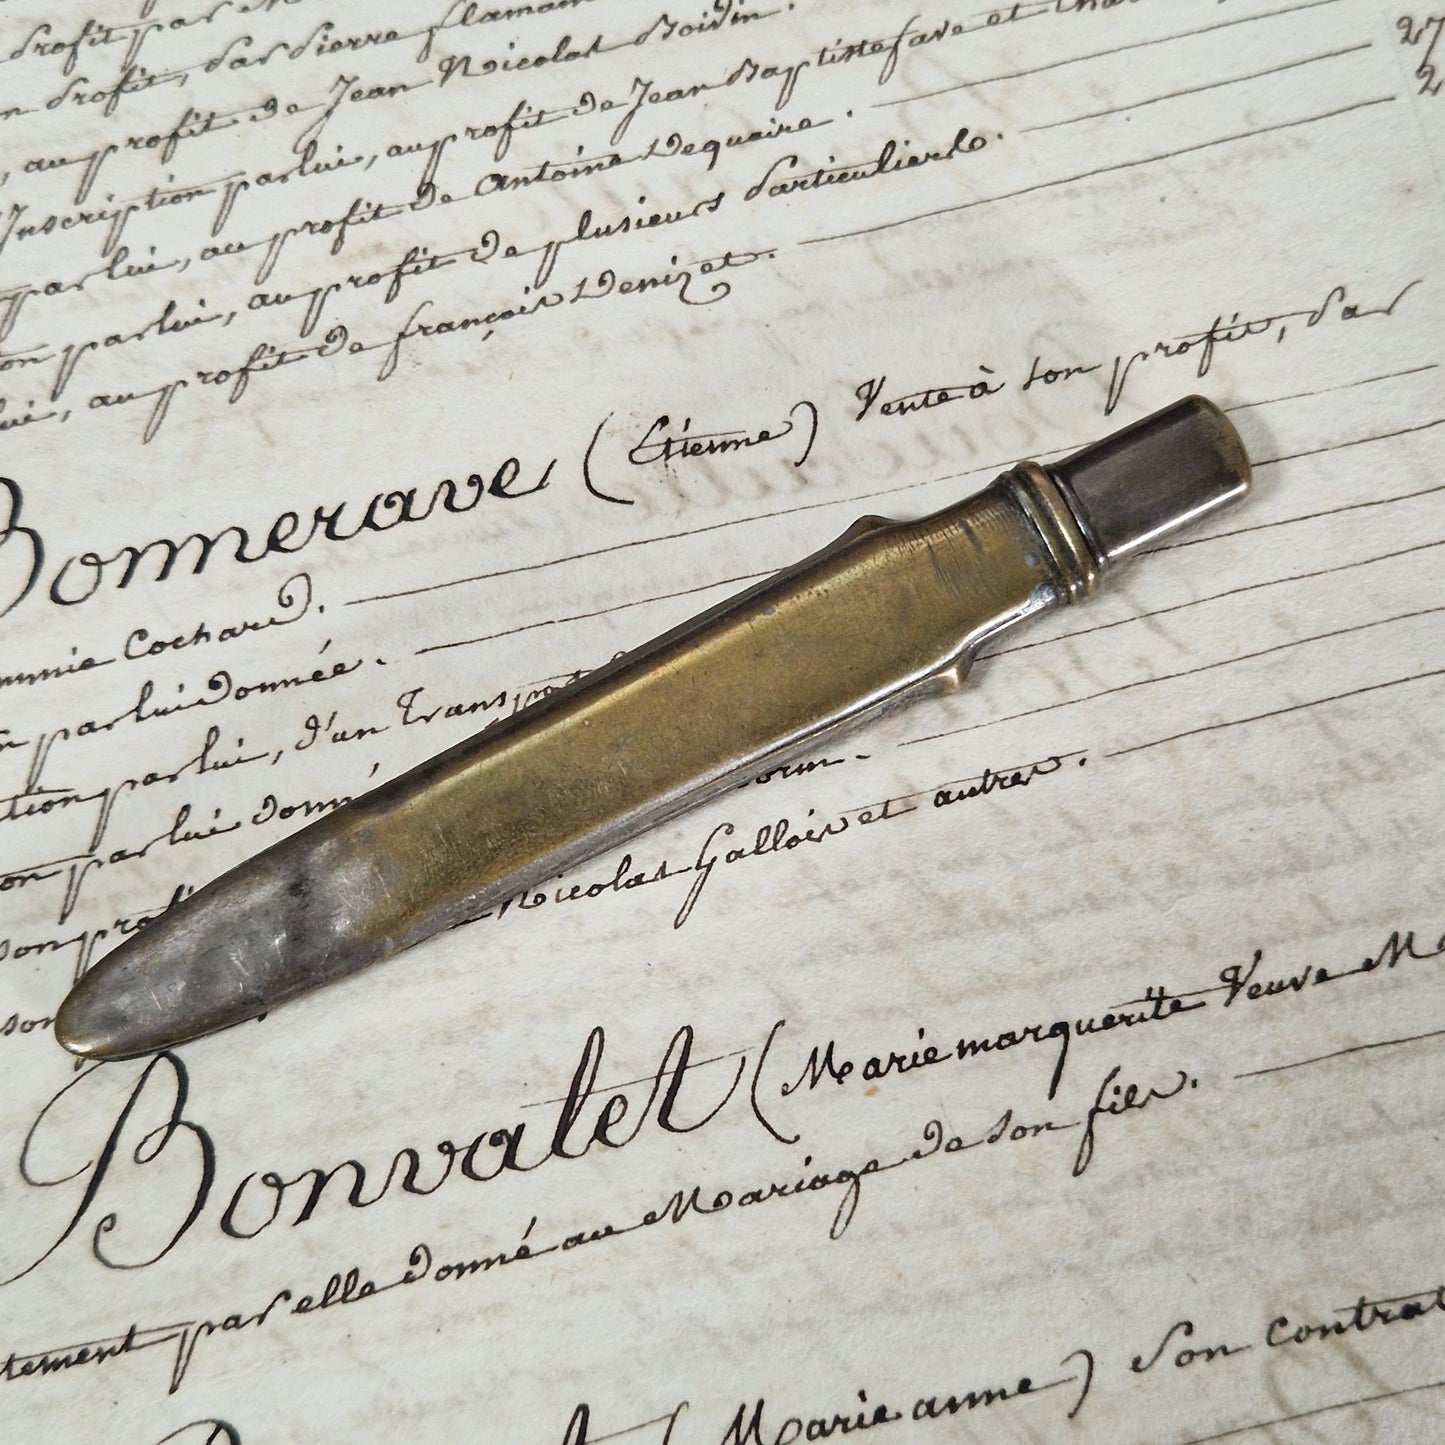 Profit par
on Profit, Par Pierre flamain
, au profit de Jean Nicolas Boidin.
Inscription par lui, au profit de Jean Baptiste fave et 27
par lui, au profit de Antoine Dequaire. 2
on par lui, au profit de plusieurs Particuliers.
lui, au profit de françois Denizet.
Bonnerave (Etienne) Vente à son profit, Par
Cochard.
par lui donnée.
tion par lui, d'un Transport
on par lui donné
son profit Nicolas Gallois et autres.
son
Bonvalet (Marie marguerite Veuve
tement par elle donné au Mariage de son fils.
(Marie anne) Son contrat